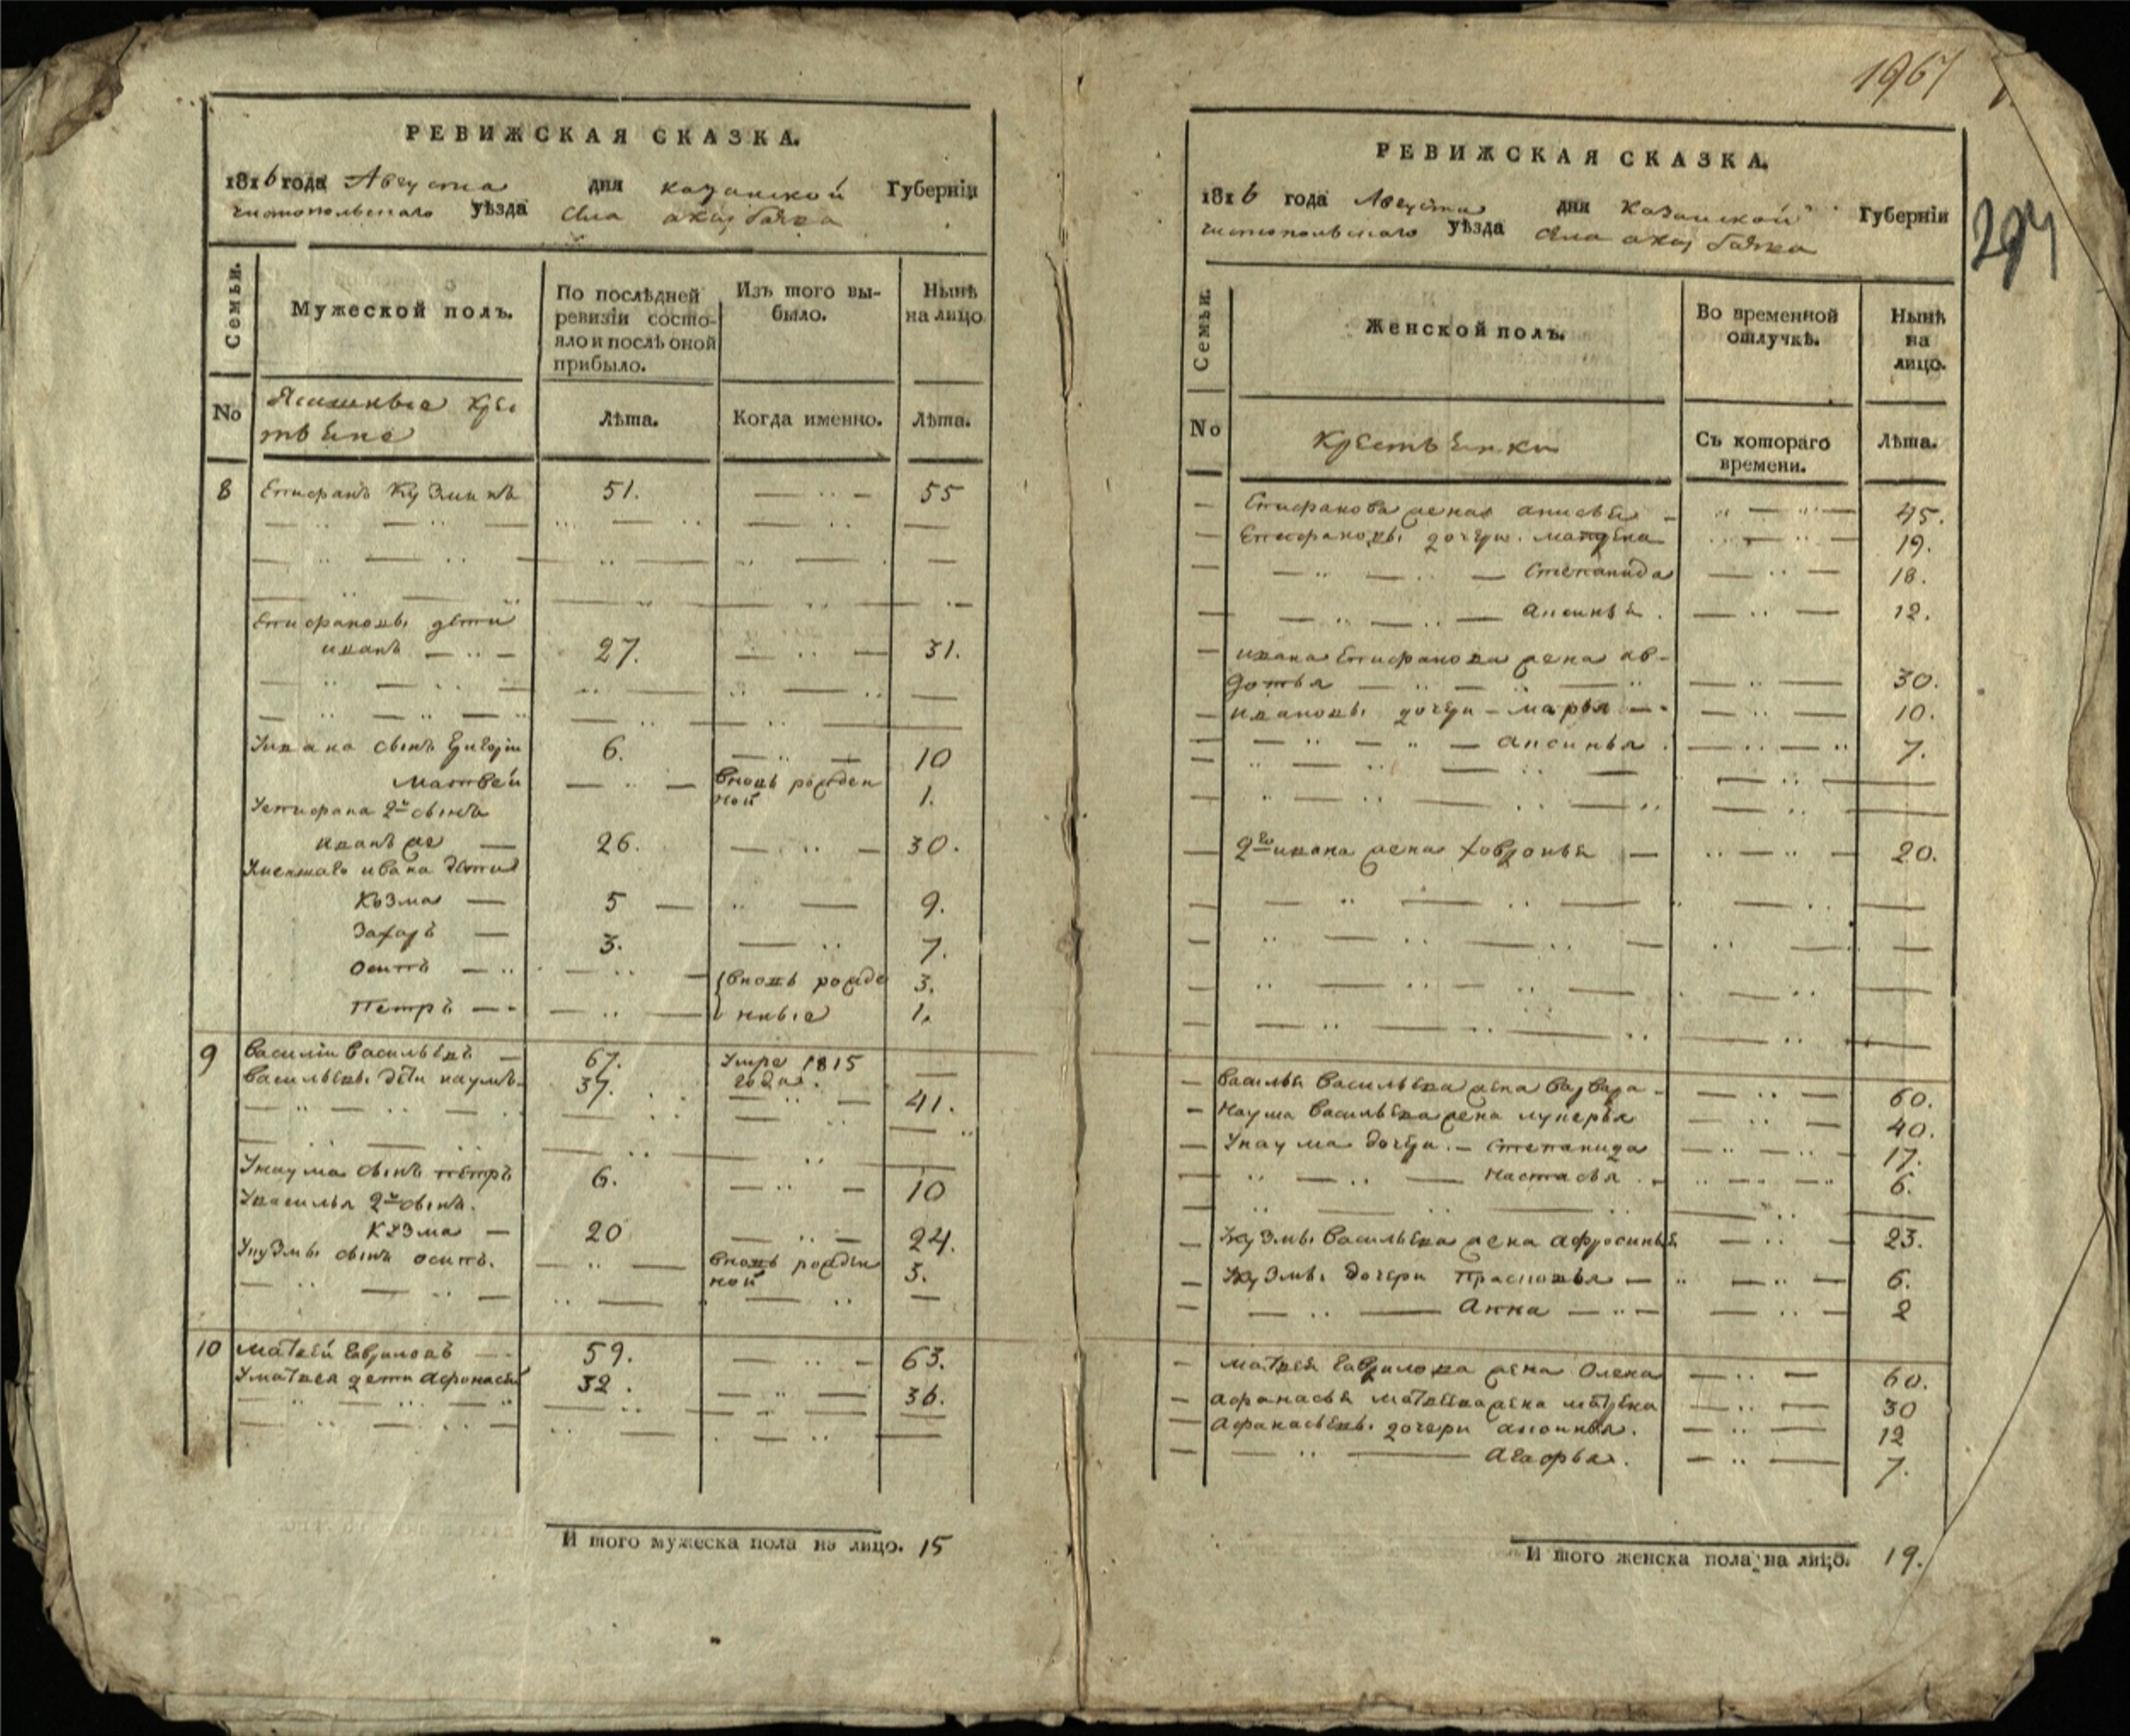 1967
294
РЕВИЖСКАЯ СКАЗКА.
1816 года Августа дня казанской Губерніи
чистопольскаго уѣзда села
Семьи.
Мужеской полъ.
По послѣдней ревизіи состо-
яло и послѣ оной прибыло.
Изъ того вы-
было.
Нынѣ на лицо
No
Ясашные кре
стьяне
Лѣта.
Когда именно.
Лѣта.
8 Епифанъ Кузминъ 51. 55
Епифановы дети
иванъ 27. 31.
Уивана сынъ Григори 6. 10
Матвей вновь рожден
ной 1.
Уепифана 2й сынъ
иванъ же 26. 30.
ивана дети
Козма 5 9.
Захаръ 3. 7.
Осипъ вновь рожде 3.
Петръ нные 1.
9 Василіи Васильевъ 67. Умре 1815
года.
Васильевы дѣти наумъ 37. 41.
Унаума сынъ петръ 6. 10
Увасилья 2й сынъ
Кузма 20 24.
Укузмы сынъ осипъ. вновь рожден
ной 3.
10 Матвеи Гавриловъ 59. 63.
Уматвея дети Афонасей 32. 36.
И того мужеска пола на лицо. 15
РЕВИЖСКАЯ СКАЗКА.
1816 года Августа дня Казанской Губерніи
чистопольскаго уѣзда села
Семьи.
Женской полъ.
Во временной
отлучкѣ.
Нынѣ
на
лицо.
No
Крестьянки
Съ котораго
времени.
Лѣта.
Епифанова жена анисья 45.
Епифановы дочери матрена 19.
Степанида 18.
Аксинья 12.
ивана Епифанова жена ав-
дотья 30.
ивановы дочери марья 10.
аксинья 7.
2го ивана жена ховронья 20.
Василья Васильева жена Варвара 60.
Наума Васильева жена лукерья 40.
Унаума дочери Степанида 17.
Настасья 6.
Укузмы Васильева жена афросинья 23.
Укузмы дочери прасковья 6.
Анна 2
Матвея Гаврилова жена Олена 60.
Афанасья Матвева жена матрена 30
Афанасьевы дочери аксинья. 12
Агафья. 7.
И того женска пола на лицо. 19.